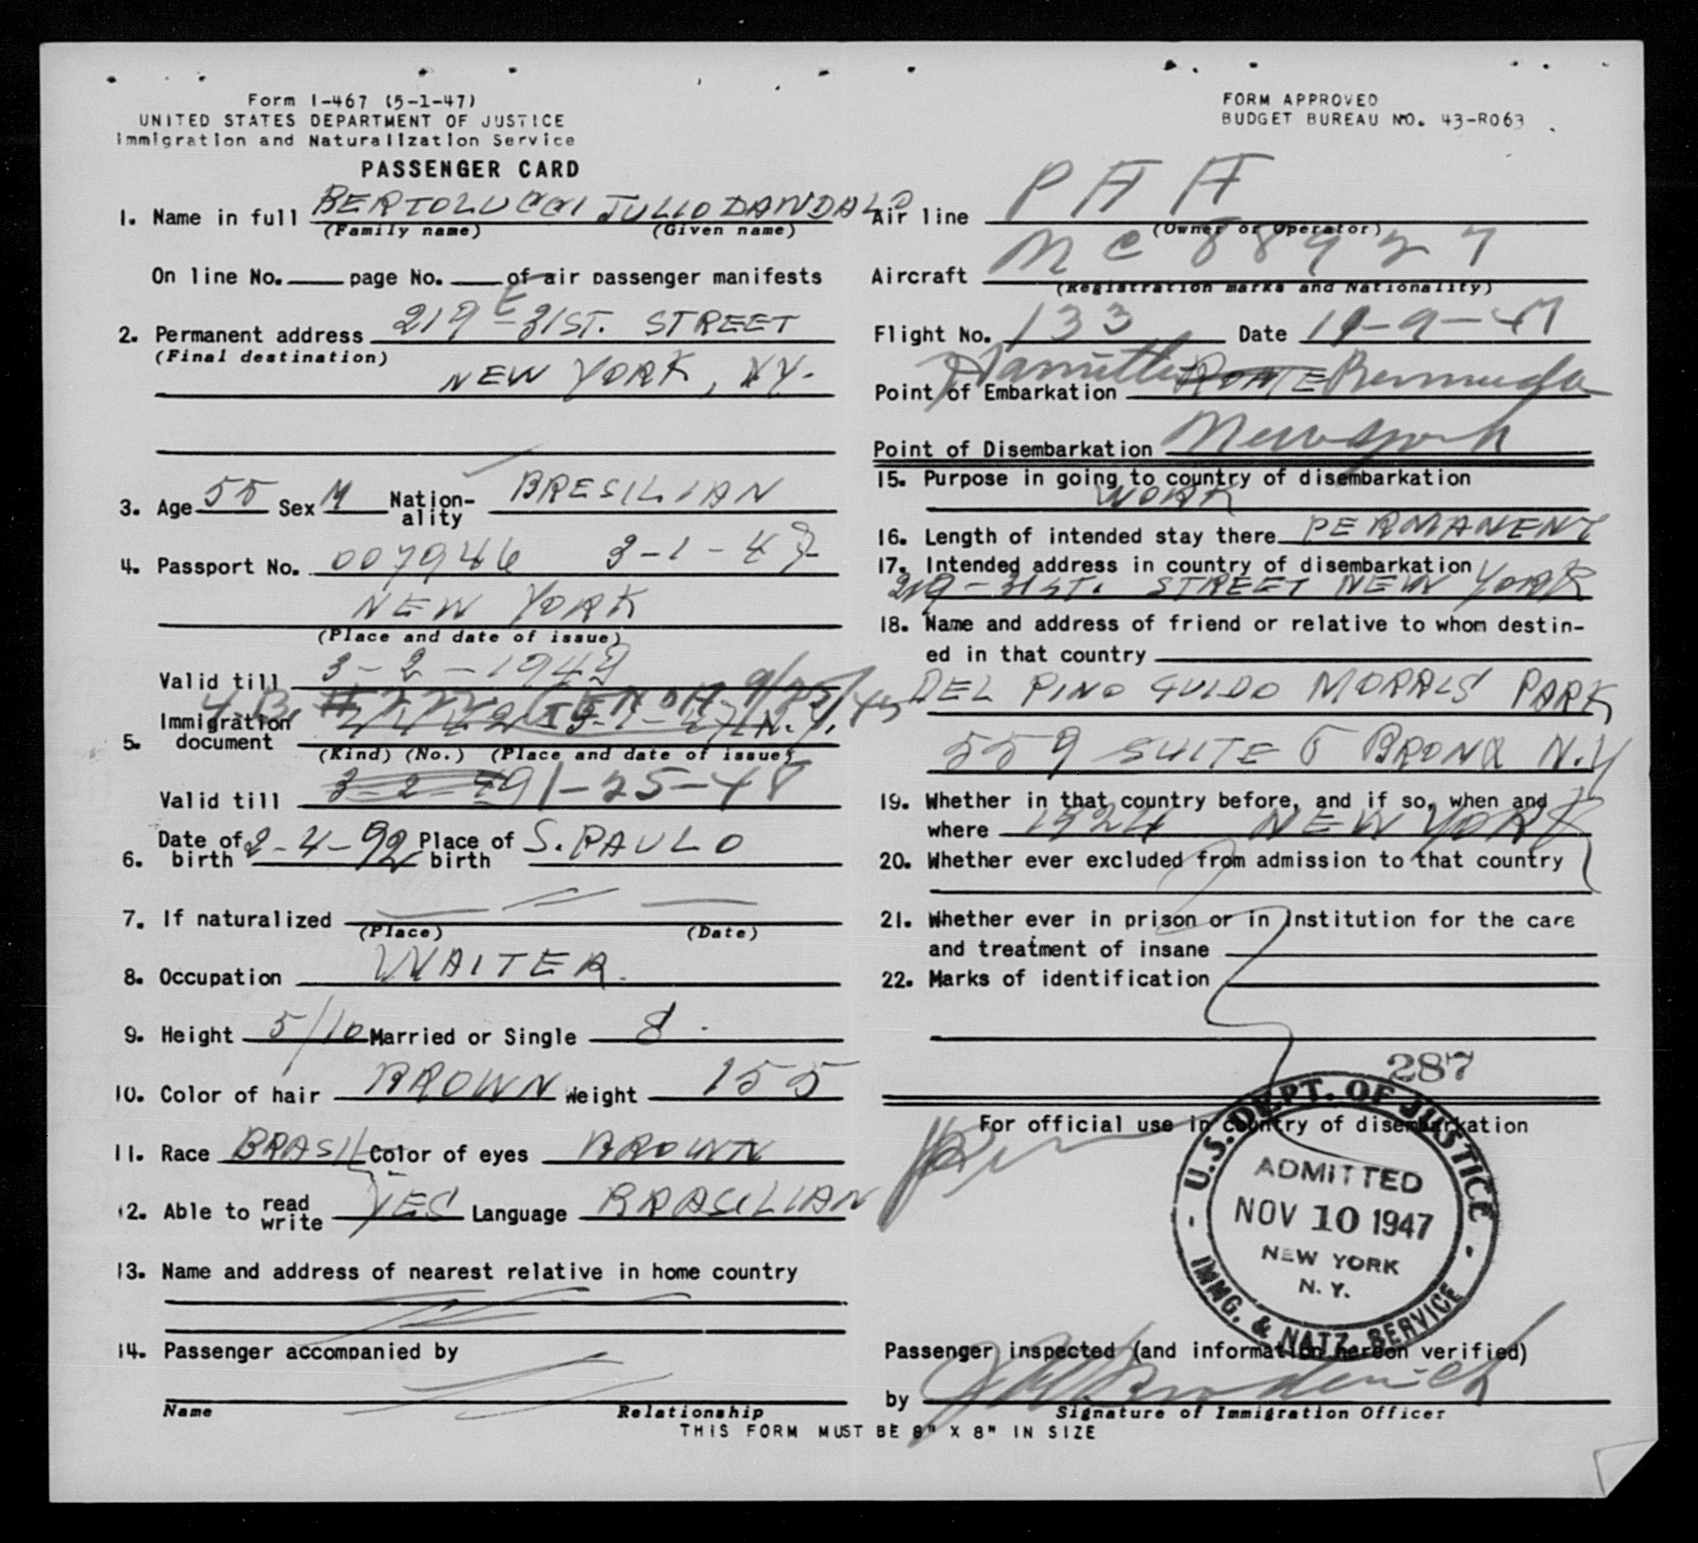 Form I-467 (5-1-47)
UNITED STATES DEPARTMENT OF JUSTICE
Immigration and Naturalization Service
PASSENGER CARD
1. Name in full BERTOLUCCI JULIO DANDALO
(Family name) (Given name)
On line No. page No. of air passenger manifests
2. Permanent address 219 E-31ST. STREET
(Final destination)
NEW YORK, NY.
3. Age 55 Sex M Nation-ality BRESILIAN
4. Passport No. 007946 3-1-47
NEW YORK
(Place and date of issue)
Valid till 3-2-1949
5. Immigration document
(Kind) (No.) (Place and date of issue)
Valid till 1-25-48
6. Date of birth 2-4-92 Place of birth S. PAULO
7. If naturalized
(Place) (Date)
8. Occupation WAITER.
9. Height 5/10 Married or Single S.
10. Color of hair BROWN Weight 155
11. Race BRASIL Color of eyes BROWN
12. Able to read write YES Language BRASILIAN
13. Name and address of nearest relative in home country
14. Passenger accompanied by
Name Relationship
THIS FORM MUST BE 8" X 8" IN SIZE
FORM APPROVED
BUDGET BUREAU NO. 43-R063
Air line PAA
(Owner or Operator)
Aircraft NC 88927
(Registration marks and Nationality)
Flight No. 133 Date 11-9-47
Point of Embarkation Hamilton ROME Bermuda
Point of Disembarkation New York
15. Purpose in going to country of disembarkation
WORK
16. Length of intended stay there PERMANENT
17. Intended address in country of disembarkation
219-31ST. STREET NEW YORK
18. Name and address of friend or relative to whom destin-
ed in that country
DEL PINO GUIDO MORRIS PARK
559 SUITE 5 BRONX N.Y
19. Whether in that country before, and if so, when and
where 1924 NEW YORK
20. Whether ever excluded from admission to that country
21. Whether ever in prison or in institution for the care
and treatment of insane
22. Marks of identification
287
For official use in country of disembarkation
U.S. DEPT. OF JUSTICE
ADMITTED
NOV 10 1947
NEW YORK
N.Y.
IMMG. & NATZ. SERVICE
Passenger inspected (and information hereon verified)
by
Signature of Immigration Officer